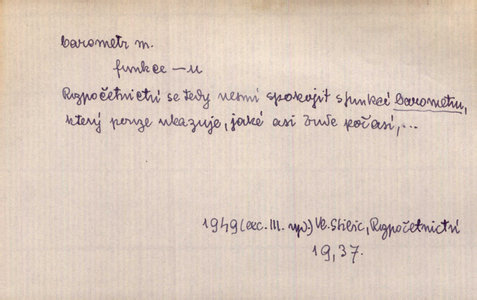 barometr m.
funkce –u
Rozpočetnictví se tedy nesmí spokojit s funkcí barometru,
který pouze ukazuje, jaké asi bude počasí,...
1949 (exc. III. vyd.) Vl. Stibic, Rozpočetnictví
19, 37.